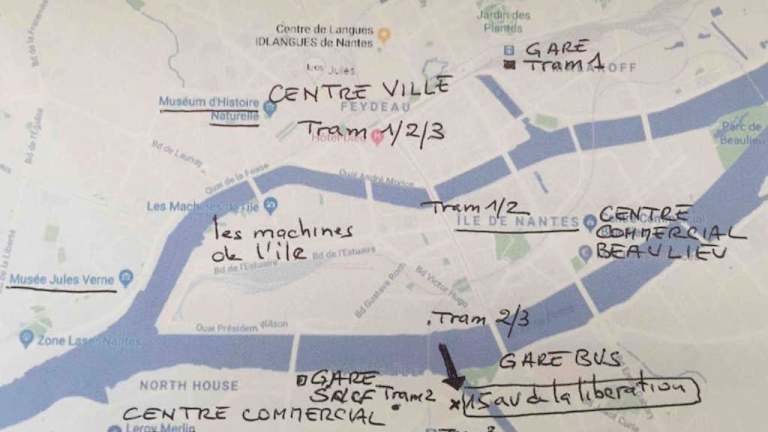 Jardin des
Plantes
Centre de Langues
IDLANGUES de Nantes
GARE
Tram 1
Jules
CENTRE VILLE
FEYDEAU
Muséum d'Histoire
Naturelle
Tram 1/2/3
Parc de
Beaulieu
Bd de Launay
Quai de la Fosse
Quai André Morice
Les Machines de l'île
les machines
de l'île
Tram 1/2
ÎLE DE NANTES
CENTRE
COMMERCIAL
BEAULIEU
Bd de l'Estuaire
Bd de l'Estuaire
Musée Jules Verne
Bd Gustave Roch
Bd Victor Hugo
Tram 2/3
Quai Président Wilson
Zone Laser Nantes
GARE BUS
NORTH HOUSE
GARE
SNCF Tram 2
15 av de la liberation
CENTRE COMMERCIAL
Leroy Merlin